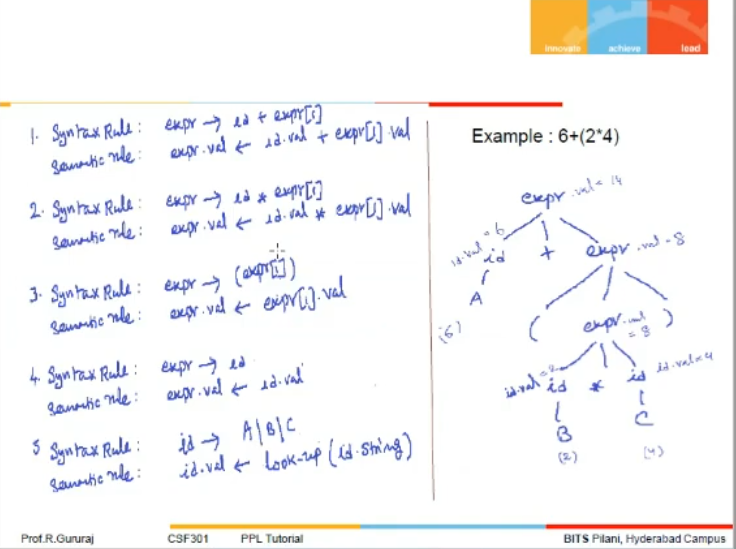 innovate achieve lead
1. Syntax Rule : expr → id + expr[1]
Semantic rule : expr.val ← id.val + expr[1].val
2. Syntax Rule : expr → id * expr[1]
Semantic rule : expr.val ← id.val * expr[1].val
3. Syntax Rule : expr → (expr[1])
Semantic rule : expr.val ← expr[1].val
4. Syntax Rule : expr → id
Semantic rule : expr.val ← id.val
5 Syntax Rule : id → A|B|C
Semantic rule : id.val ← look-up (id.string)
Example : 6+(2*4)
expr.val = 14
id.val = 6 id + expr.val = 8
A
(6)
( expr.val = 8 )
id.val = 2 id * id id.val = 4
B C
(2) (4)
Prof.R.Gururaj CSF301 PPL Tutorial BITS Pilani, Hyderabad Campus